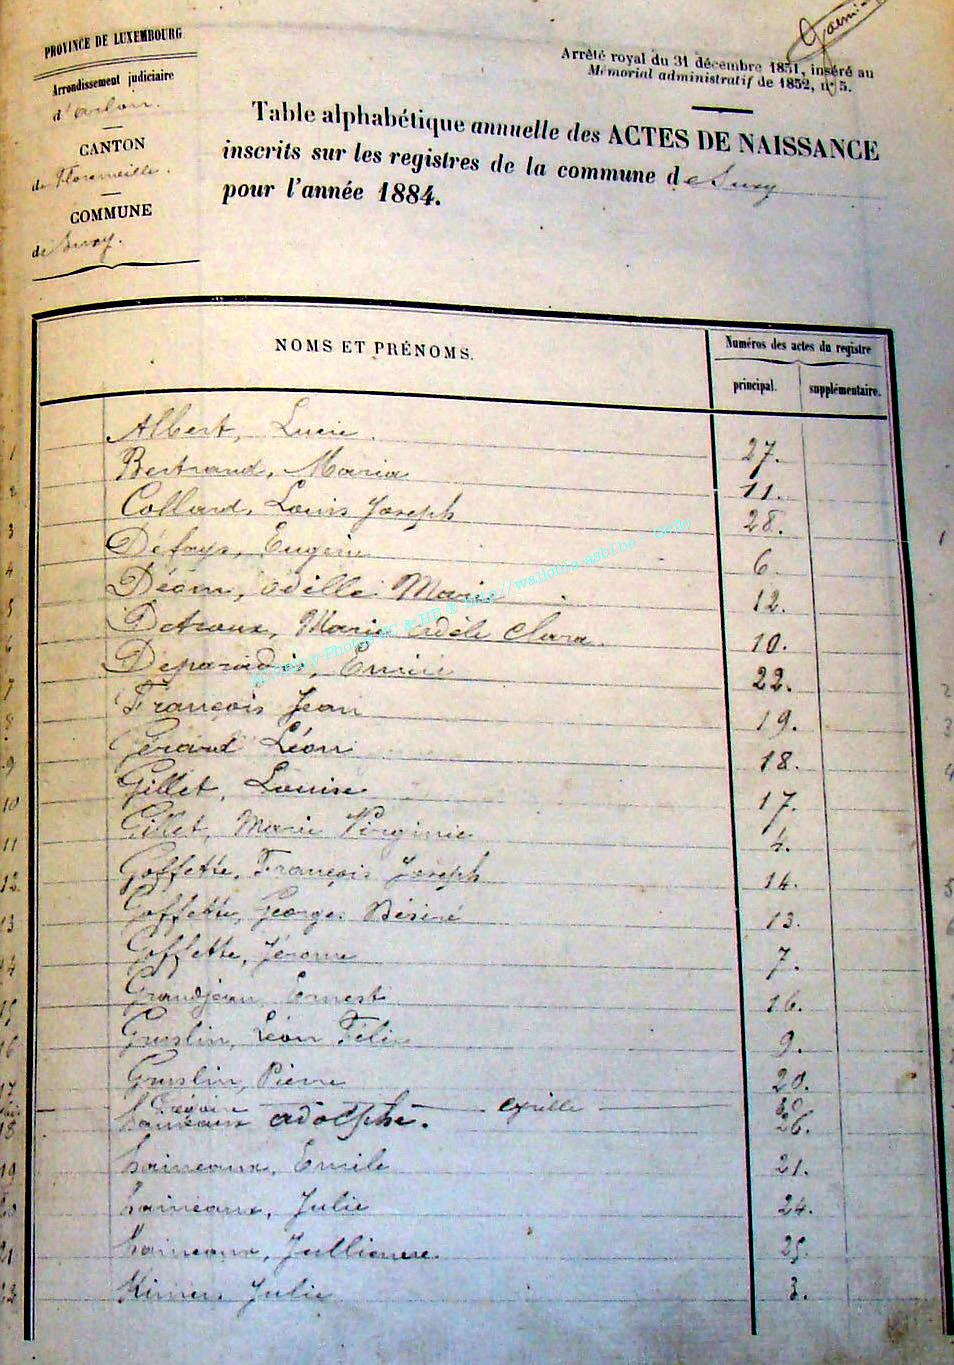 PROVINCE DE LUXEMBOURG
Arrondissement judiciaire
d'Arlon.
CANTON
de Florenville.
COMMUNE
de Suxy.
Arrêté royal du 31 décembre 1851, inséré au
Mémorial administratif de 1852, n° 5.
Table alphabétique annuelle des ACTES DE NAISSANCE
inscrits sur les registres de la commune de Suxy
pour l'année 1884.
NOMS ET PRÉNOMS.
Numéros des actes du registre
principal. supplémentaire.
1 Albert, Lucie. 27.
2 Bertrand, Maria 11.
3 Collard, Louis Joseph 28.
4 Défays, Eugénie 6.
5 Déom, Odille Marie 12.
6 Detroux, Marie Adèle Clara 10.
7 Deparadis, Emile 22.
8 François Jean 19.
9 Gérard Léon 18.
10 Gillet, Louise 17.
11 Gillet, Marie Virginie 4.
12 Goffette, François Joseph 14.
13 Goffette, Georges Désiré 13.
14 Goffette, Jérome 7.
15 Grandjean Ernest 16.
16 Guslin, Léon Félix 9.
17 Guslin, Pierre 20.
Grégoire cyrille
18 Laineaux adolphe. 26.
19 Laineaux, Emile 21.
20 Laineaux, Julie 24.
21 Laineaux, Jullienne 25.
22 Julie 3.